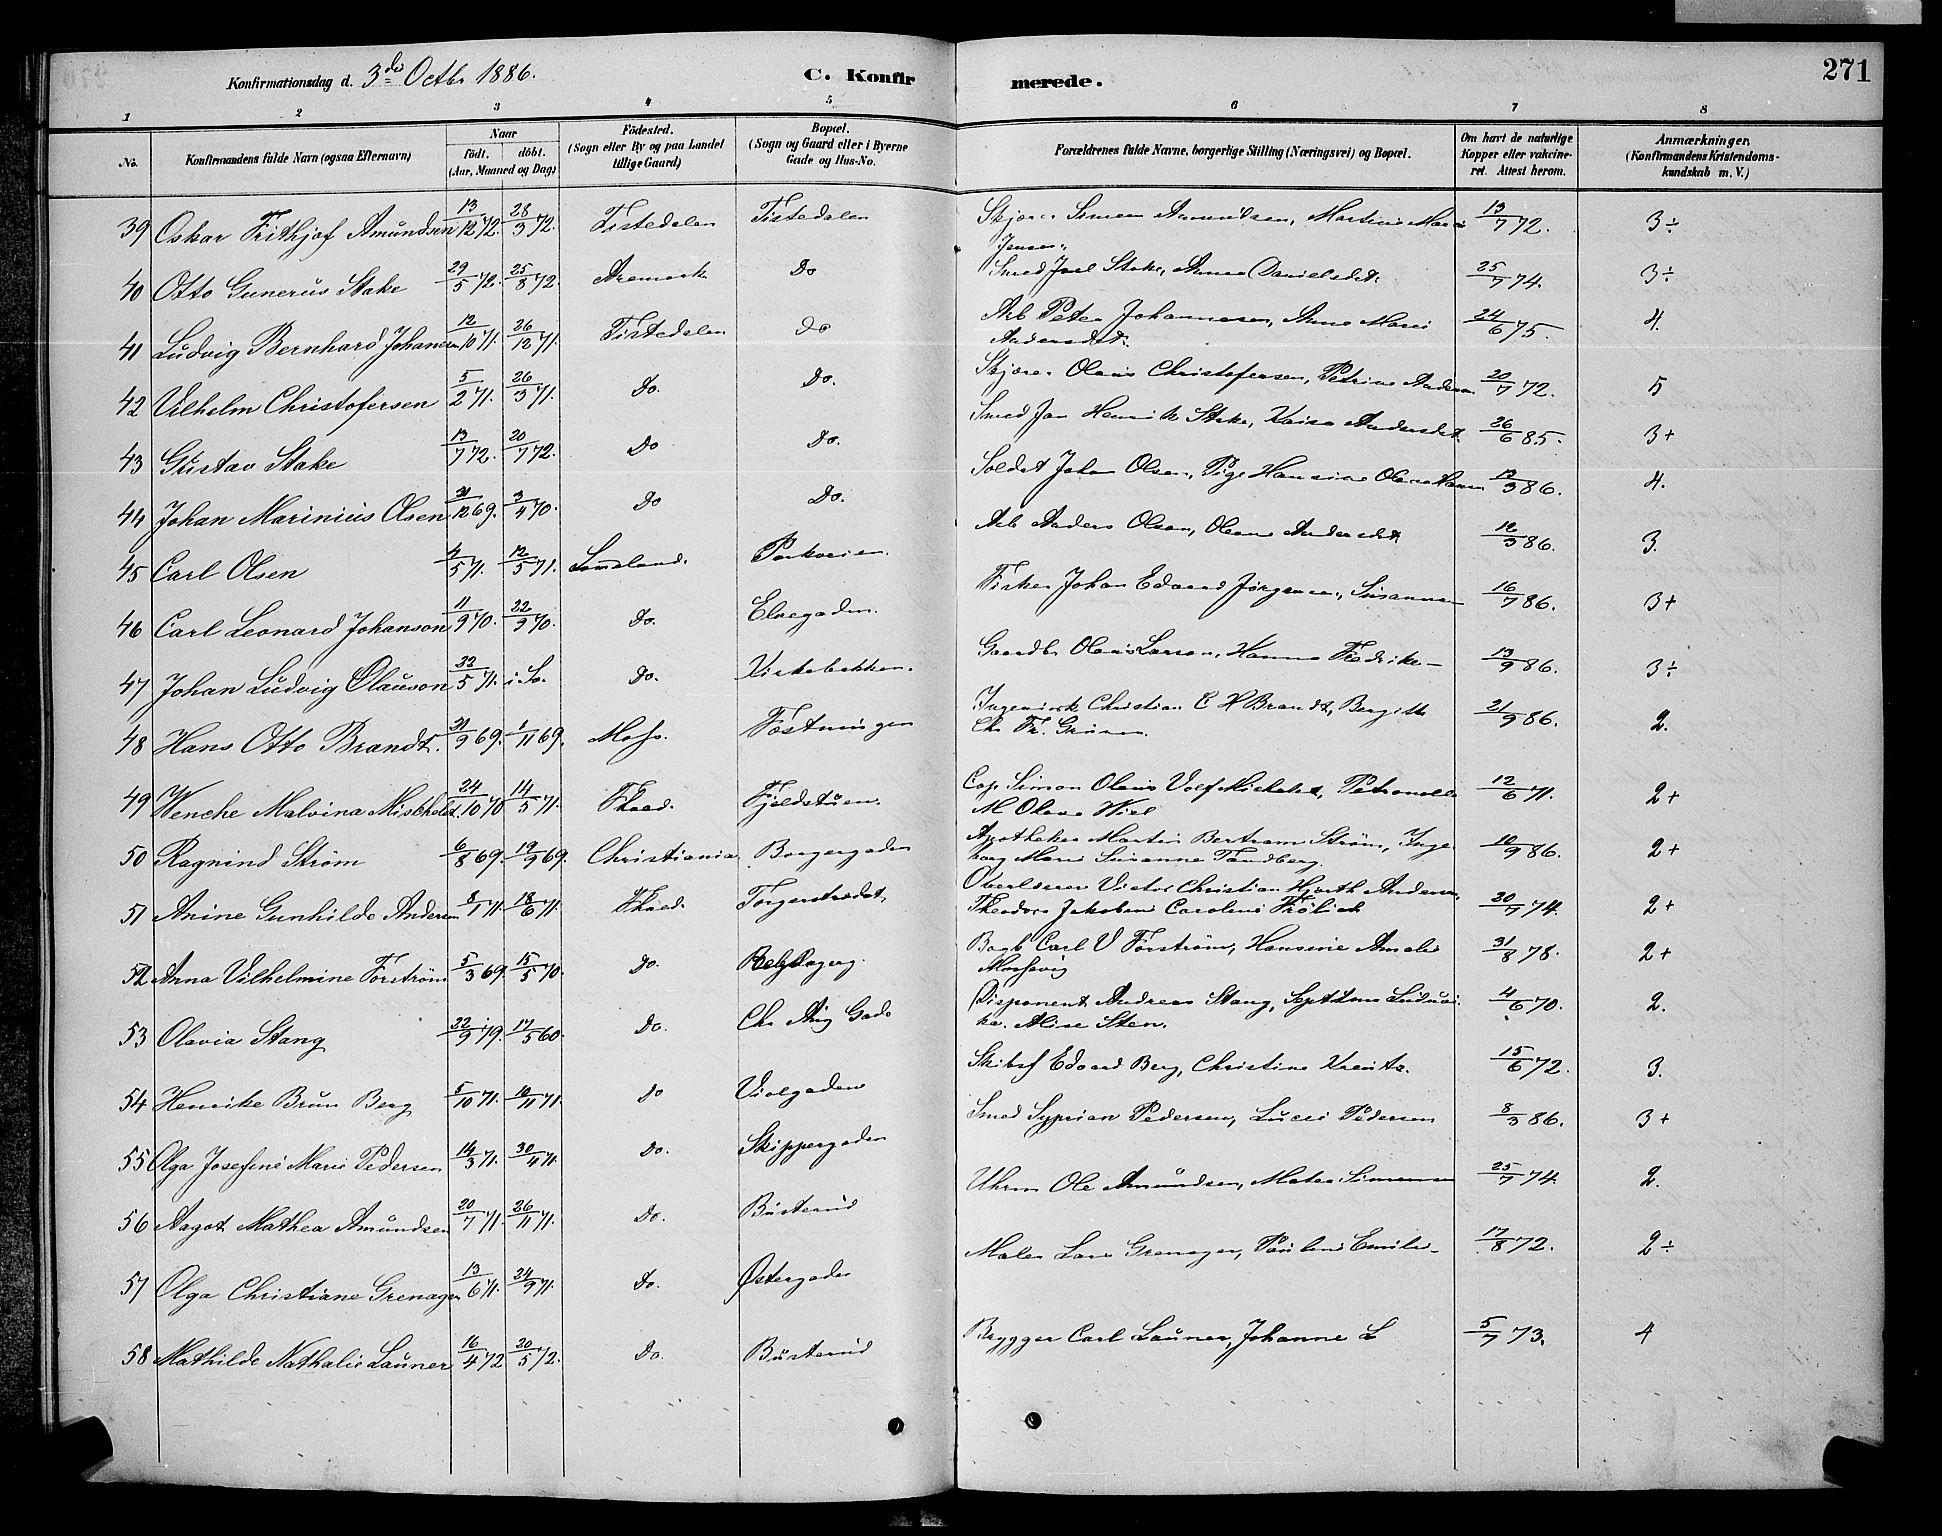 Konfirmationsdag d. 3die Octbr 1886. C. Konfirmerede. 271
1 2 3 4 5 6 7 8
No. Konfirmandens fulde Navn (ogsaa Efternavn) Naar födt. döbt. (Aar, Maaned og Dag) Födested. (Sogn eller By og paa Landet tillige Gaard) Bopæl. (Sogn og Gaard eller i Byerne Gade og Hus-No. Forældrenes fulde Navne, borgerlige Stilling (Næringsvei) og Bopæl. Om havt de naturlige Kopper eller vakcineret. Attest herom. Anmærkninger. (Konfirmandens Kristendomskundskab m. V.)
39 Oskar Frithjof Amundsen 13/12 72. 28/3 72. Tistedalen Tistedalen Skjærer Simen Amundsen, Martine Marie Jensen. 13/7 72. 3÷
40 Otto Gunerus Stake 29/5 72. 25/8 72. Aremark Do Smed Joel Stake, Anne Danielsdat. 25/7 74. 3÷
41 Ludvig Bernhard Johansen 12/10 71. 26/12 71. Tistedalen Do Arb Peter Johannesen, Anne Marie Andersdat. 24/6 75. 4.
42 Vilhelm Christofersen 5/2 71. 26/3 71. Do. Do. Skjærer Olaus Christofersen, Petrine Andersen 20/7 72. 5
43 Gustav Stake 13/7 72. 20/7 72. Do Do. Smed Jan Henrik Stake, Kaisa Andersdat. 26/6 85. 3+
44 Johan Marinius Olsen 31/12 69. 3/4 70. Do Do. Soldat Johan Olsen, Pige Hansine Olava Hansen 12/3 86. 4.
45 Carl Olsen 4/5 71. 12/5 71. Parkveien. Arb Anders Olsen, Olava Andersdat 12/3 86. 3.
46 Carl Leonard Johanson 11/9 70. 22/9 70. Do. Elvegaden. Fisker Johan Edvard Jørgensen, Susanna 16/7 86. 3+
47 Johan Ludvig Olauson 22/5 71. Do. Virkebakken. Gaardbr Olaus Larson, Hanna Fredrike 13/9 86. 3÷
48 Hans Otto Brandt. 21/9 69. 1/11 69. Moss. Fæstningen Christian C H Brandt, Bergitte Chr Fr. 21/9 86. 2.
49 Wenche Malvina Michelet. 24/10 70 14/5 71. Fhald. Fjeldstuen. Cap. Simon Olaus Volf Michelet, Petronelle M Olava Wiel 12/6 71. 2+
50 Ragnind Strøm 6/8 69. 19/9 69. Christiania Borgergaden Apotheker Martin Bertram Strøm, Ingeborg Marie Susanne Tandberg. 10/9 86. 2+
51 Anine Gunhilde Andersen 8/1 71. 18/6 71. Fhald. Torgerstrædet Overlærer Victor Christian Hjorth Andersen, Theodora Jakobine Caroline Frølich 30/7 74. 2+
52 Anna Vilhelmine Forstrøm 5/3 69. 15/5 70. Do. Bogb Carl V Forstrøm, Hansine Amalie 31/8 78. 2+
53 Olavia Stang 22/9 79. 17/5 60. Do. Chr Aug Gade Disponent Andreas Stang, Septima Ludovika Alise Sten. 4/6 70. 2.
54 Henrike Brun Berg 5/10 71. 10/11 71. Do Violgaden Skibsf Edvard Berg, Christine 15/6 72. 3.
55 Olga Josefine Marie Pedersen 14/3 71. 30/4 71. Do. Skippergaden Smed Syprian Pedersen, Lucie Pedersen 8/3 86. 3+
56 Aagot Mathea Amundsen 20/7 71. 26/11 71. Do. Busterud Uhrm Ole Amundsen, Matea Simensen 25/7 74. 2.
57 Olga Christiane Grenager 13/6 71. 24/9 71. Do. Østergaden Maler Lars Grenager, Pauline Emilie 17/8 72. 2÷
58 Mathilde Nathalie Launer 16/4 72 20/5 72. Do. Busterud Brygger Carl Launer, Johanne L 5/7 73. 4